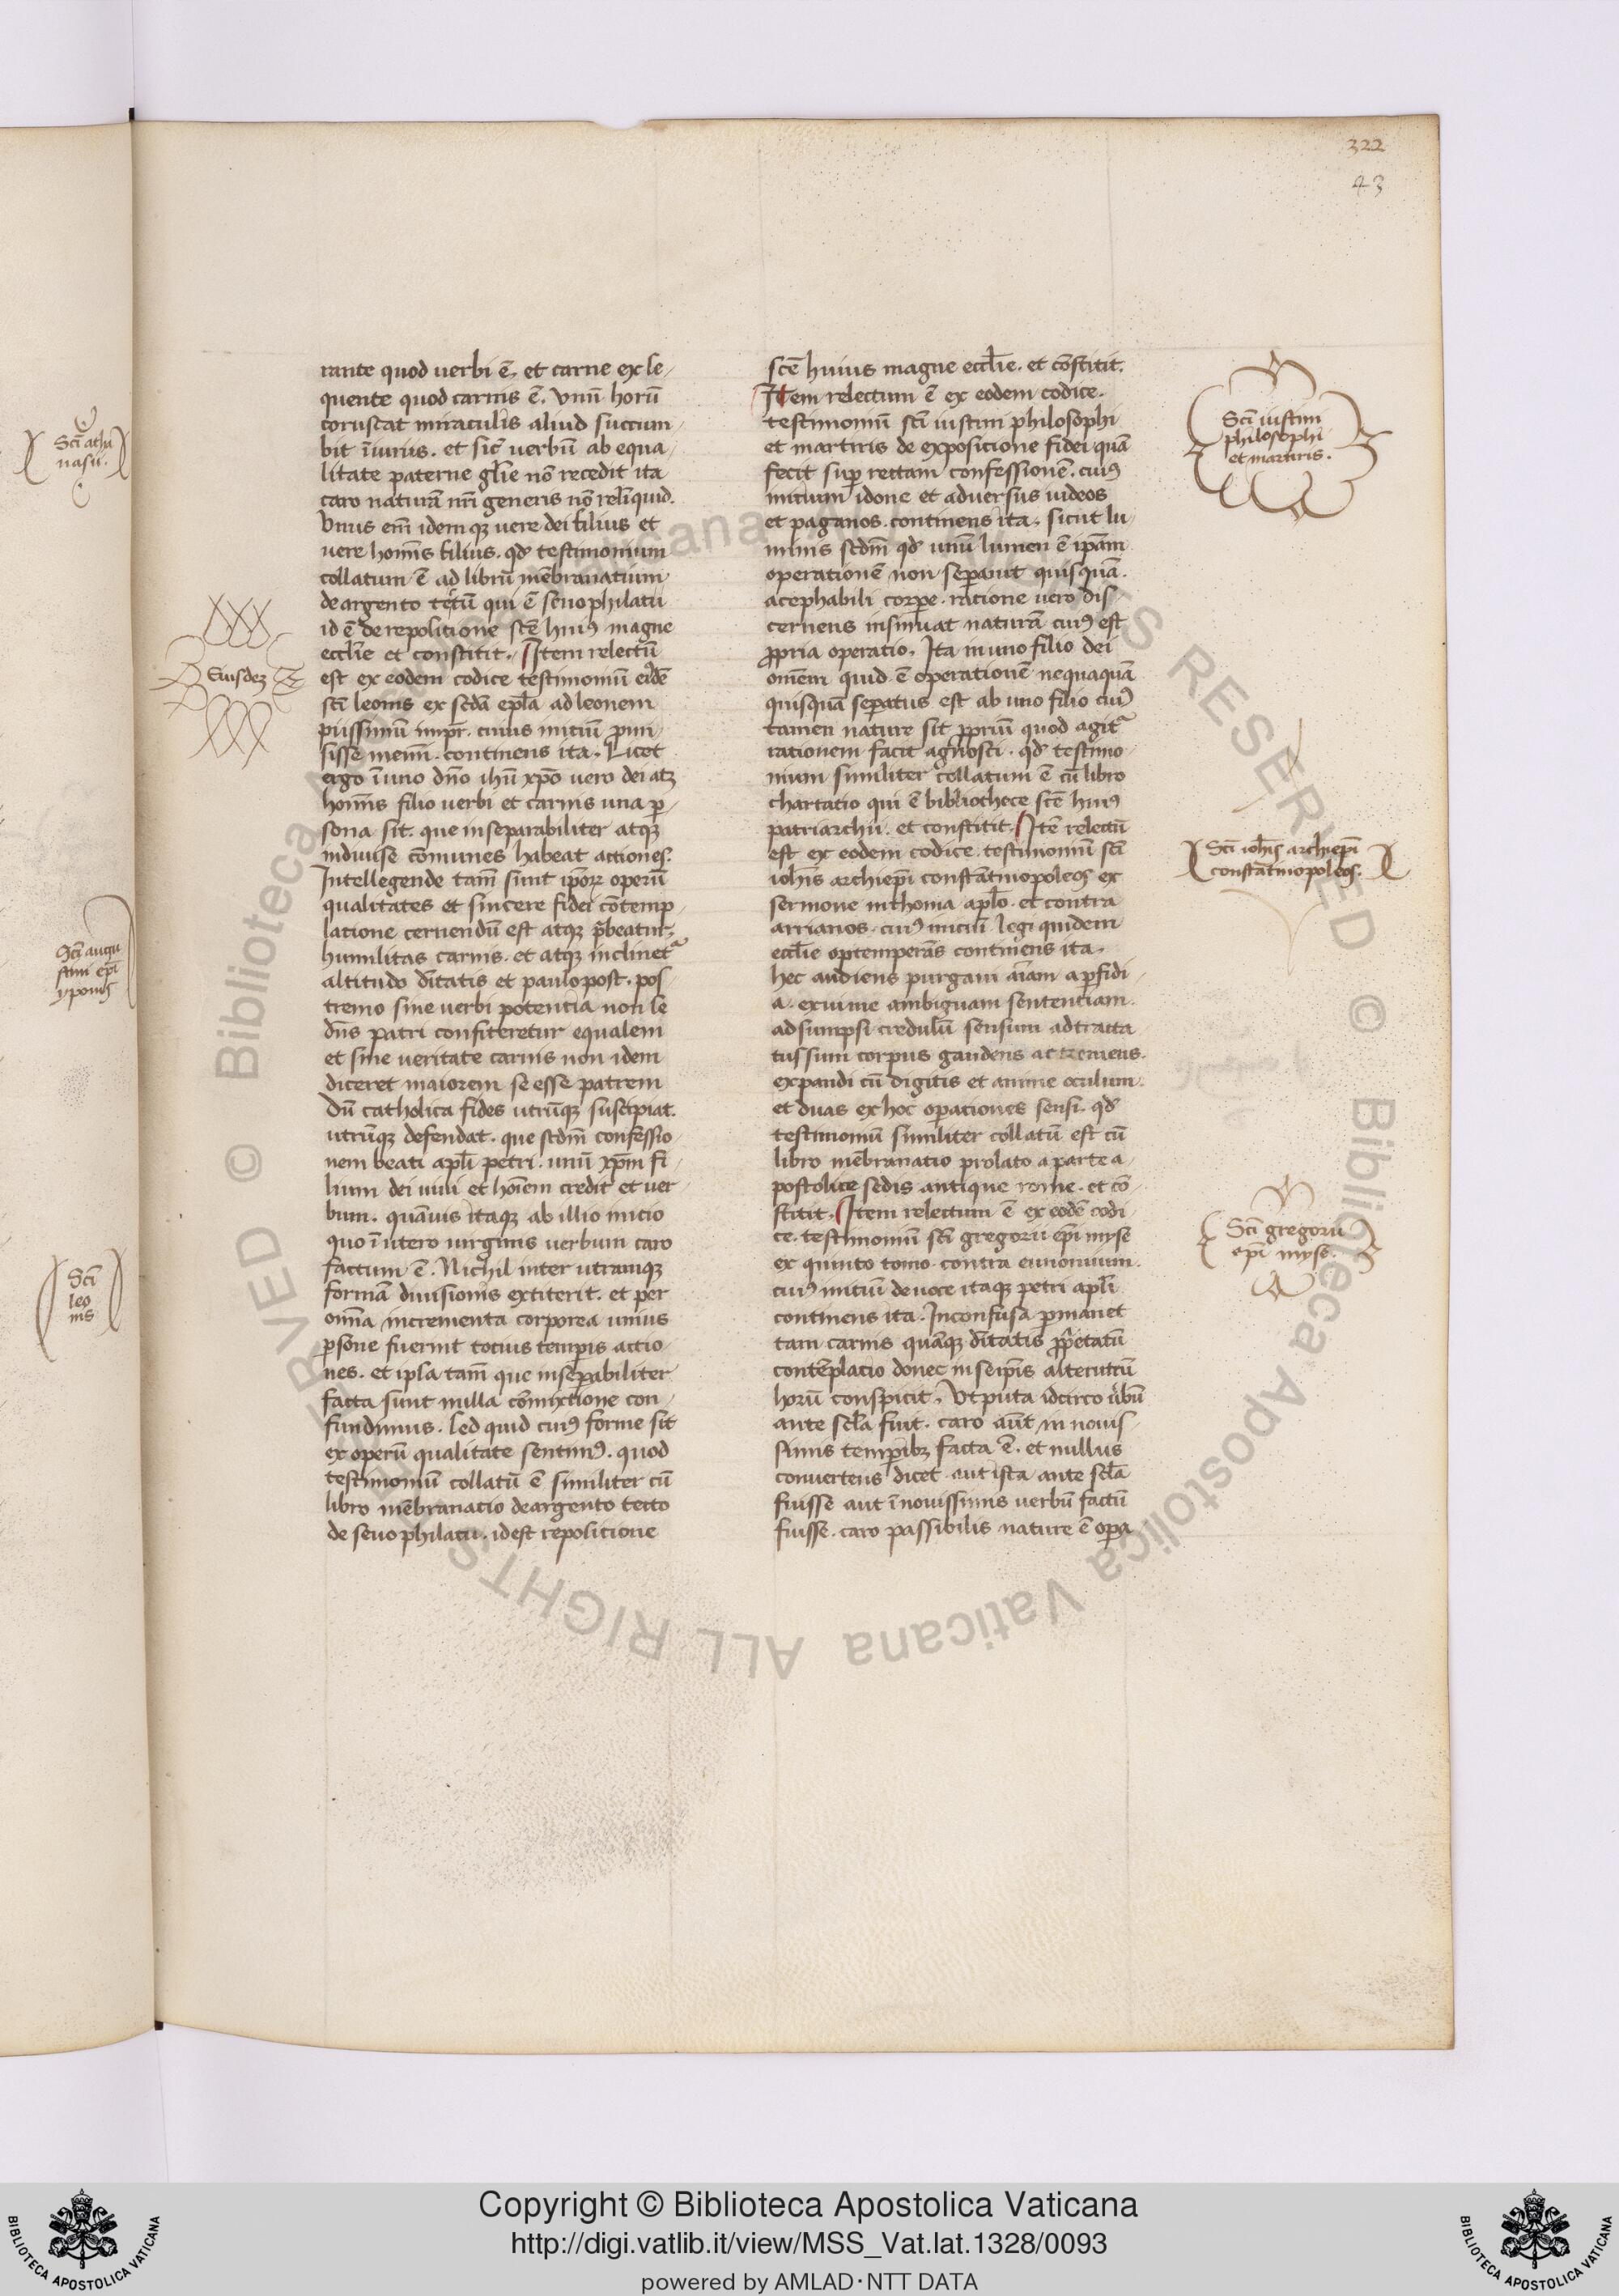 322
43
Scī athā
nasii.
Scī augu
stini ep̄i
yponēs
Scī
leo
nis
Eiusdeȝ
rante quod uerbi ē. et carne exse
quente quod carnis ē. Vnū horū
coruscat miraculis aliud succum
bit īiuriis. et sic̄ uerbū ab equa
litate paterne gl̄ie nō recedit ita
caro naturā nr̄i generis nō relīquid.
Vnus em̄ idem qȝ uere dei filius et
uere hoīs filius. qđ testimonium
collatum ē ad librū mēbranatium
de argento tectū qui ē sceuophilatii
id ē de repositione scē huiꝰ magne
eccl̄ie et constitit. Item relectū
est ex eodem codice testimoniū eiꝰdē
scī leonis ex scd̄a ep̄la ad leonem
piissimū imp̄r. cuius iniciū promi
sisse memī. continens ita. Licet
ergo ī uno dn̄o ih̄u xp̄o uero dei atqȝ
hoīs filio uerbi et carnis una ꝑ
sona sit. que inseparabiliter atqȝ
indiuise cōmunes habeat actiones.
Intellegende tam̄ sunt ip̄oꝝ operū
qualitates et sincere fidei cōtemp
latione cernendū est atqȝ p̄beatur
humilitas carnis. et atqȝ inclinet᷑
altitudo dītatis et paulo post. pos
tremo sine uerbi potentia non se
dn̄s patri confiteretur equalem
et sine ueritate carnis non idem
diceret maiorem se esse patrem
Dū catholica fides utrūqȝ suscipiat.
utrūqȝ defendat. que scdm̄ confessio
nem beati apl̄i petri. unū xp̄m fi
lium dei uiui et hoīem credit et uer
bum. quāuis itaqȝ ab illio inicio
quo ī utero uirginis uerbum caro
factum ē. Nichil inter utramqȝ
formā diuisionis extiterit. et per
omīa incrementa corporea unius
ꝑsone fuerint tocius tempis actio
nes. et ipsa tam̄ que inseꝑabiliter
facta sunt nulla cōmixtione con
fundimus. sed quid cuiꝰ forme sit
ex operū qualitate sentimꝰ. quod
testimoniū collatū ē similiter cū
libro mēbranatio de argento tecto
de seuophilatii. id est repositione
scē huius magne eccl̄ie. et cōstitit.
Item relectum ē ex eodem codice.
testimoniū scī iustini philosophi
et martiris de exposicione fidei quā
fecit suꝑ rectam confessionē. cuiꝰ
inicium idone et aduersus iudeos
et paganos. continens ita. sicut lu
minis scdm̄ qđ unū lumen ē ip̄am
operationē non seꝑauit quisquā.
acephabili corꝑe. racione uero dis
cernens insinuat naturā cuiꝰ est
ꝓpria operatio. Ita in uno filio dei
omēm quid ē operationē nequaquā
quisquā seꝑatus est ab uno filio cuiꝰ
tamen nature sit ꝓpriū quod agit᷑
rationem facit agnosci. qđ testimo
nium similiter collatum ē cū libro
chartatio qui ē bibliothece scē huiꝰ
patriarchii. et constitit. Itē relectū
est ex eodem codice. testimoniū scī
ioh̄is archiep̄i constātinopoleos ex
sermone in thoma apl̄o. et contra
arrianos. cuiꝰ iniciū legi quidem
eccl̄ie optemperās continens ita.
hec audiens purgaui aīam a ꝑfidi
a. exui me ambiguam sententiam
adsumpsi credulū sensum adtracta
tus sum corpus gaudens ac tremens.
expandi cū digitis et anime oculum.
et duas ex hoc oꝑaciones sensi. qđ
testimoniū similiter collatū est cū
libro mēbranatio prolato a parte a
postolice sedis antique rome. et cō
stitit. Item relectum ē ex eodē codi
ce. testimoniū scī gregorii ep̄i myse
ex quinto tomo. contra eunomium.
cuiꝰ iniciū de uoce itaqȝ petri apl̄i
continens ita. Inconfusa ꝑmanet
tam carnis quāqȝ dītatis ꝓp̄etatū
contēplacio donec in seip̄is alterutrū
horū conspicit. Ut puta idcirco ūbū
ante scl̄a fuit. caro aūt in nouis
simis tempibȝ facta ē. et nullus
conuertens dicet aut ista ante scl̄a
fuisse aut ī nouissimis uerbū factū
fuisse. caro passibilis nature ē oꝑa
Scī iustini
philosophi
et martiris.
Scī ioh̄is archiep̄i
constātinopoleos.
Scī gregorii
ep̄i myse.
© Biblioteca Apostolica Vaticana ALL RIGHTS RESERVED
Copyright © Biblioteca Apostolica Vaticana
http://digi.vatlib.it/view/MSS_Vat.lat.1328/0093
powered by AMLAD·NTT DATA
BIBLIOTECA APOSTOLICA VATICANA
BIBLIOTECA APOSTOLICA VATICANA